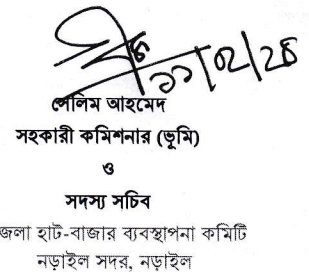 সেলিম আহমেদ
সহকারী কমিশনার (ভূমি)
ও
সদস্য সচিব
জলা হাট-বাজার ব্যবস্থাপনা কমিটি
নড়াইল সদর, নড়াইল